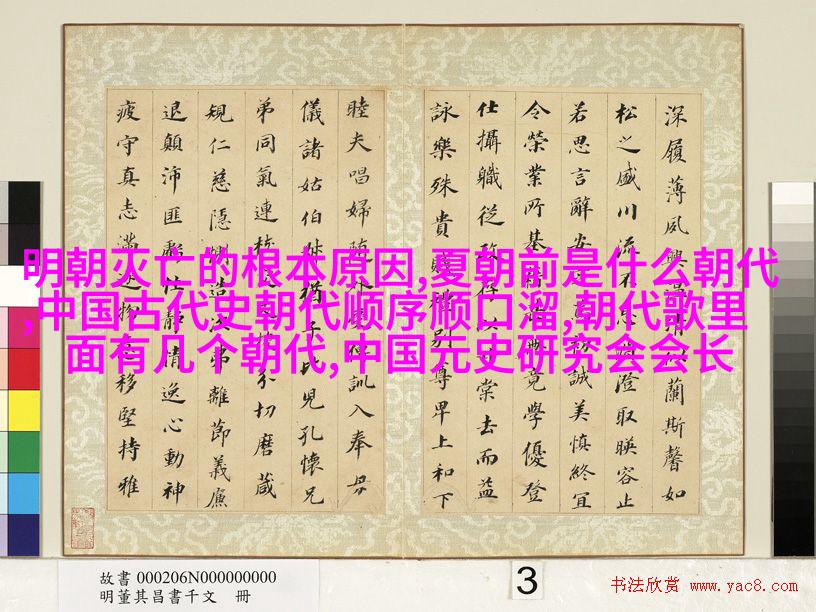 深履薄夙興溫凊似蘭斯馨如
松之盛川流不息淵澄取暎容止
若思言辭安定篤初誠美慎終宜
令榮業所基籍甚無竟學優登
仕攝職從政存以甘棠去而益
詠樂殊貴賤禮別尊卑上和下
睦夫唱婦隨外受傅訓入奉母
儀諸姑伯叔猶子比兒孔懷兄
弟同氣連枝交友投分切磨箴
規仁慈隱惻造次弗離節義廉
退顛沛匪虧性靜情逸心動神
疲守真志滿逐物意移堅持雅
明朝灭亡的根本原因,夏朝前是什么朝代
,中国古代史朝代顺序顺口溜,朝代歌里
面有几个朝代,中国元史研究会会长
故書 000206N000000000
明董其昌書千文 冊
3
书法欣赏 www.yac8.com